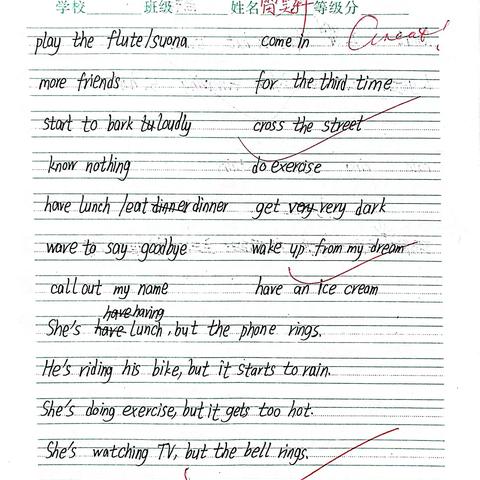 学校 班级 姓名 等级分
Great!
play the flute/suona come in
more friends for the third time
start to bark loudly cross the street
know nothing do exercise
have lunch /eat dinner dinner get very very dark
wave to say goodbye wake up from my dream
call out my name have an ice cream
have having
She's have lunch, but the phone rings.
He's riding his bike, but it starts to rain.
She's doing exercise, but it gets too hot.
She's watching TV, but the bell rings.